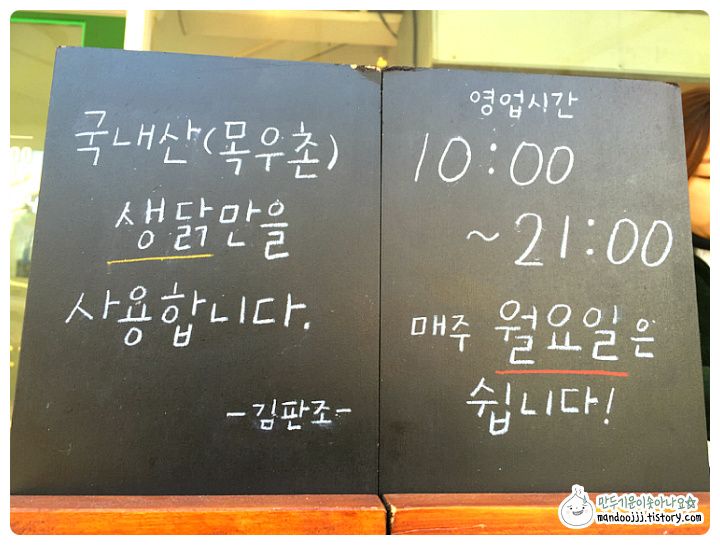 국내산(목우촌)
생닭만을
사용합니다.
-김판조-
영업시간
10:00
~21:00
매주 월요일은
쉽니다!
만두기운이솟아나요☆
mandoojjj.tistory.com